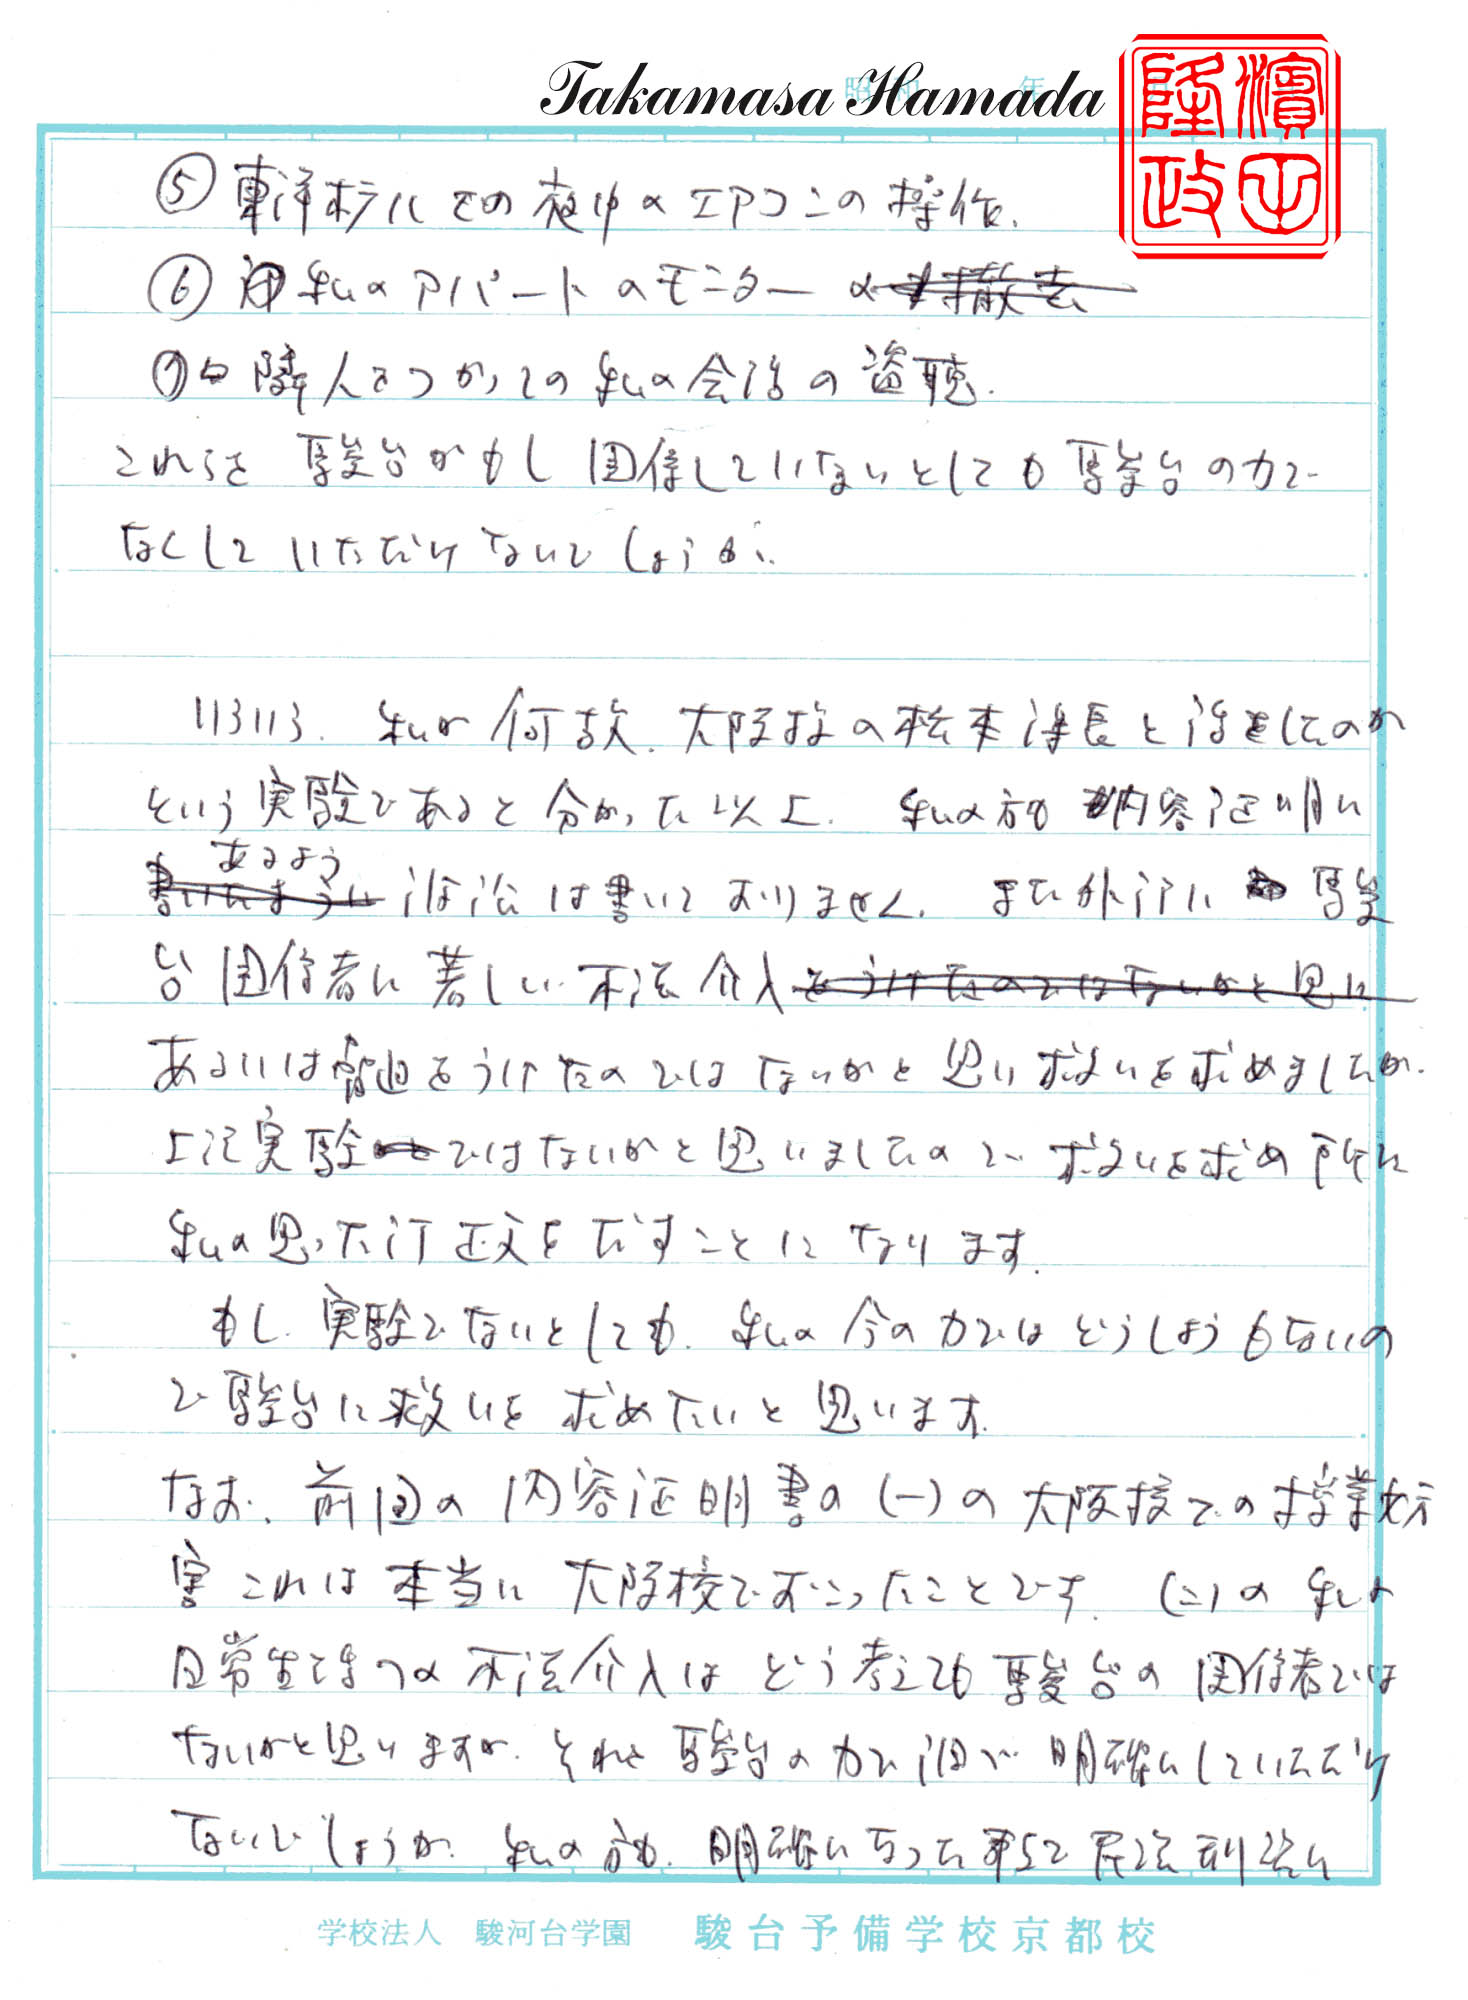 Takamasa Hamada
濱田
隆政
昭和 年
⑤ 東洋ホテルでの夜中のエアコンの操作.
⑥ 私のアパートのモニターの撤去
⑦ 隣人をつかっての私の会話の盗聴.
これらを 駿台がもし関係していないとしても駿台の力で
なくしていただけないでしょうか.
いろいろ. 私が何故. 大阪校の松本課長と話をしたのか
という実験であると分かった以上. 私の方も 内容証明に
あるよう
書いたように 法は書いておりません. また外部に 駿
台関係者に著しい不法介入をうけたのではないかと思い
あるいは脅迫をうけたのではないかと思い救いを求めましたが.
上記実験ではないかと思いましたので 救いを求め
私の思った訂正文をだすことになります.
もし. 実験でないとしても. 私の今の力ではどうしようもないの
で駿台に救いを求めたいと思います.
なお. 前回の内容証明書の(一)の大阪校での授業妨
害これは本当に大阪校でおこったことです. (二)の私の
日常生活の不法介入はどう考えても駿台の関係者では
ないかと思いますが. それを駿台の力で 明確にしていただけ
ないでしょうか. 私の方も. 明確になった 民法刑法に
学校法人 駿河台学園 駿台予備学校京都校